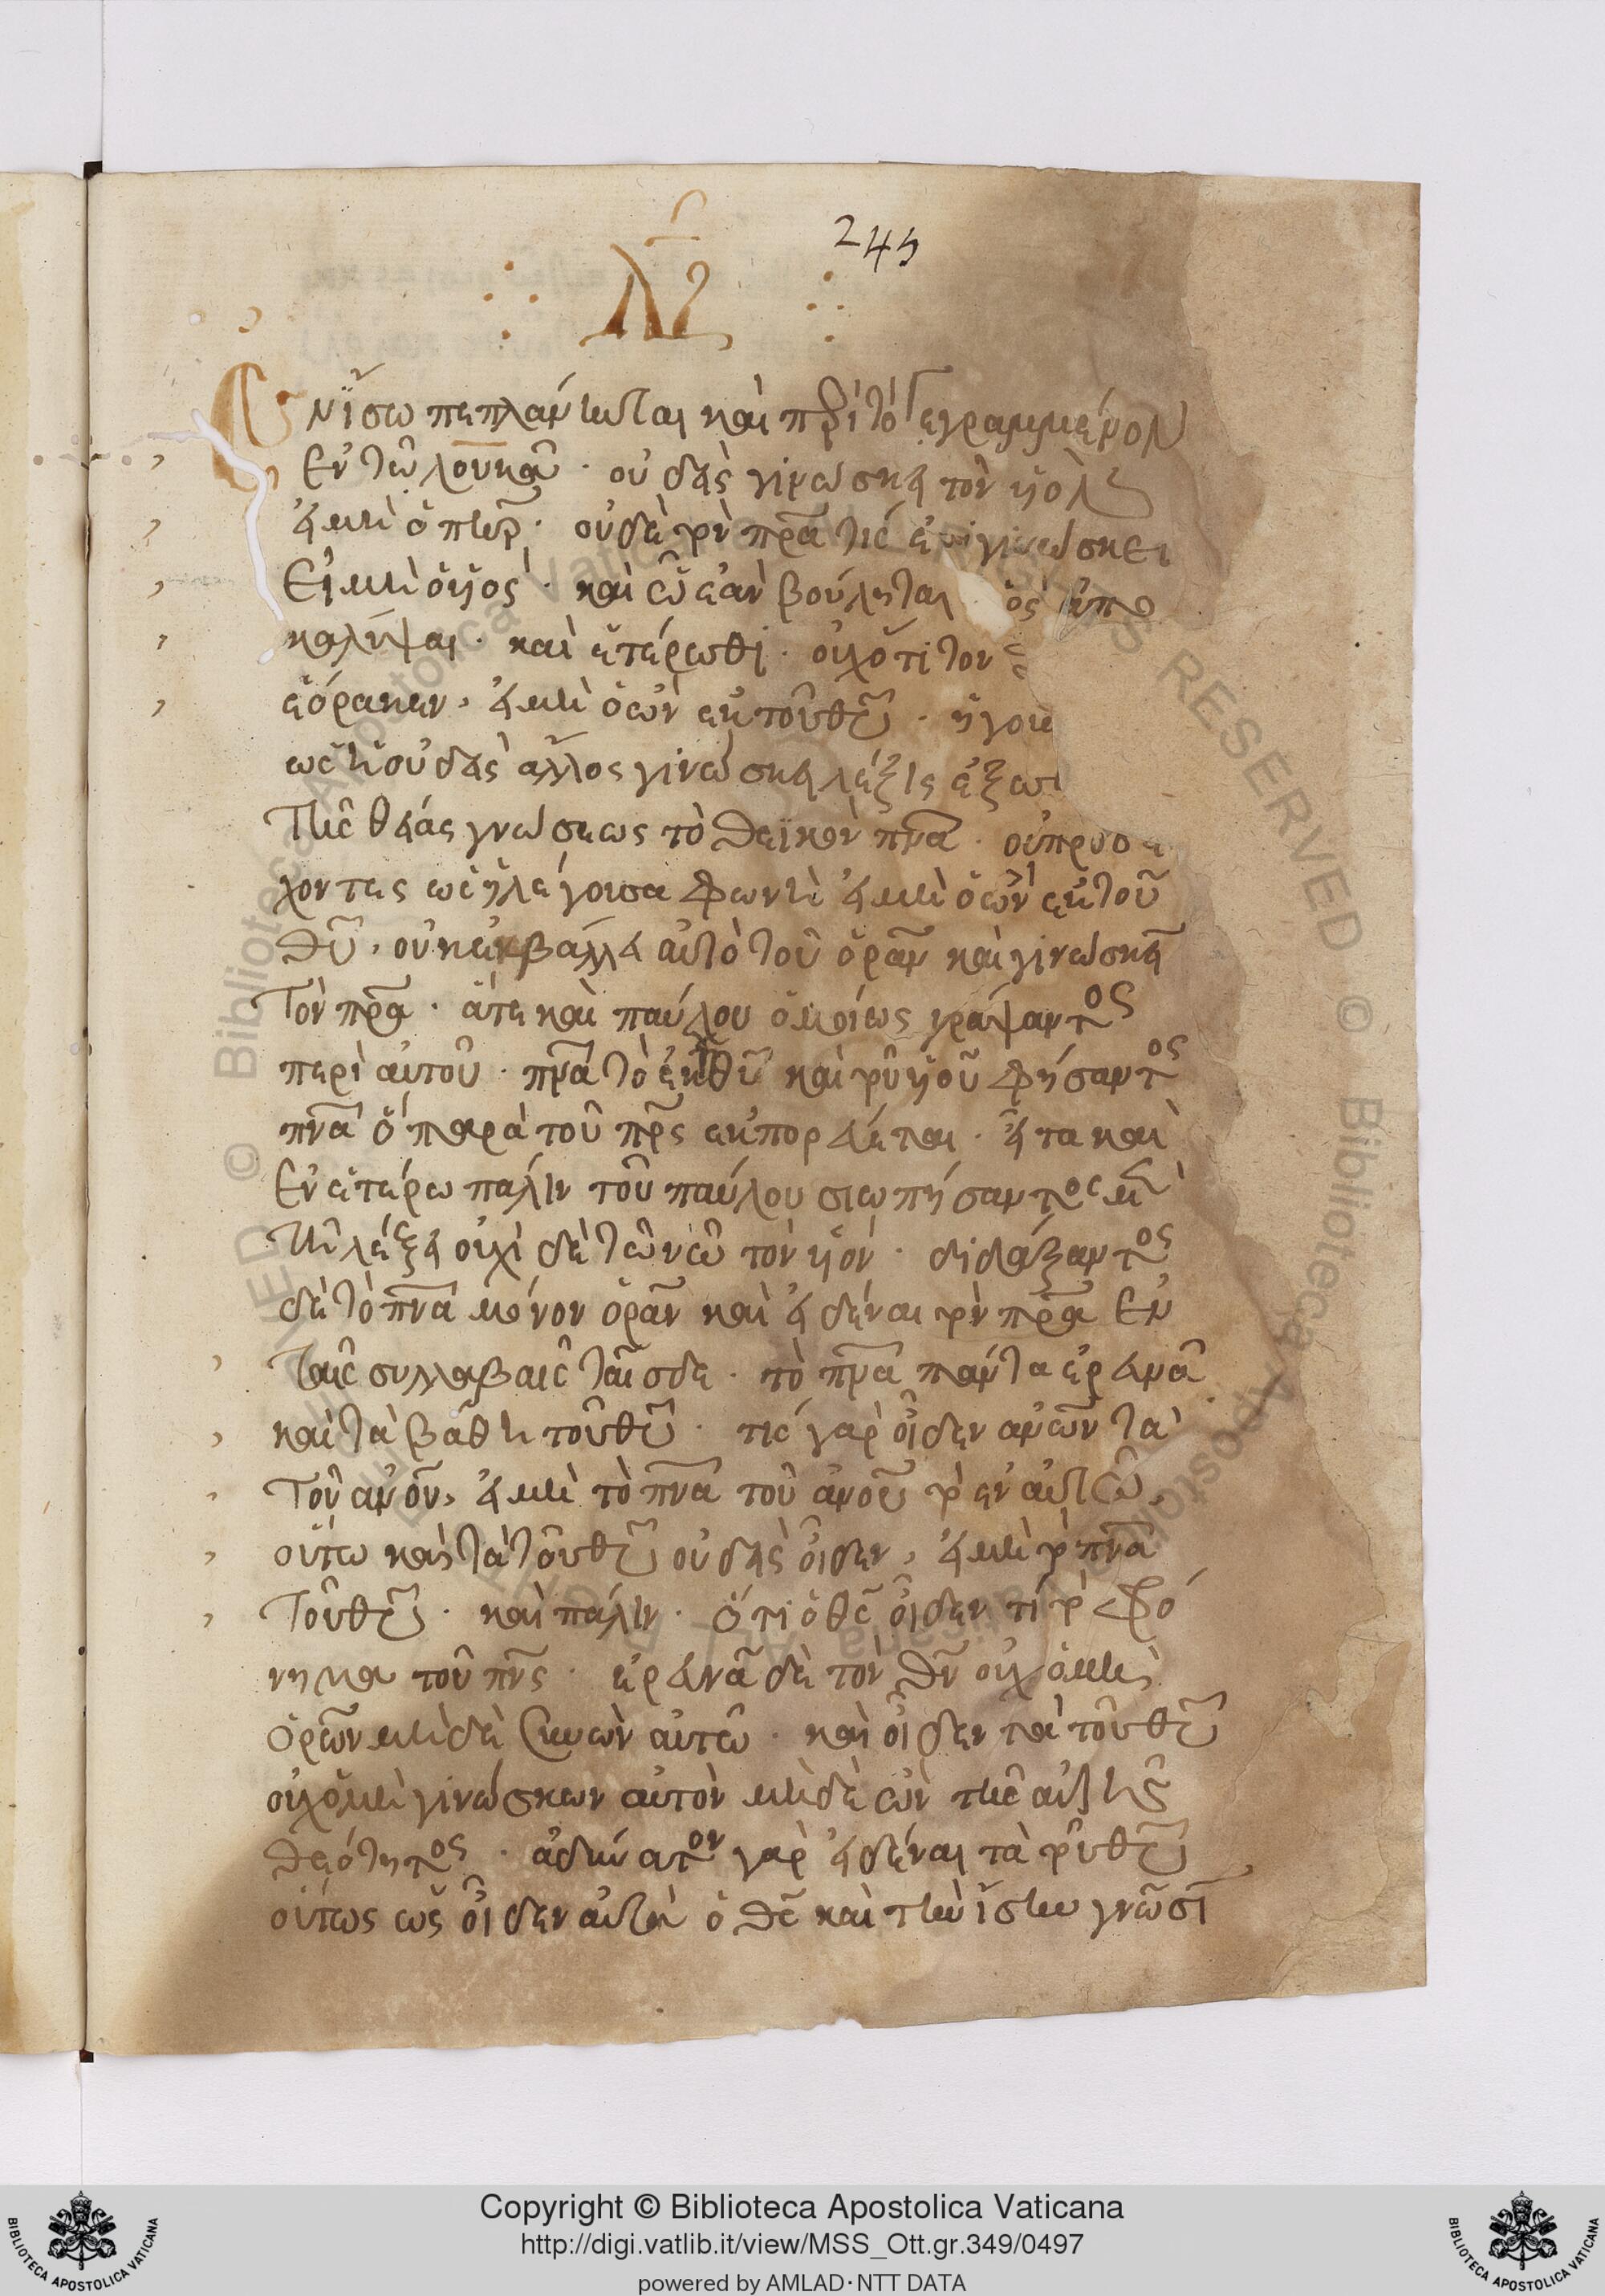 245
νίσω πεπλάνωνται καὶ περὶ τὸ γεγραμμένον
Ἐν τῷ λουκᾶ · οὐδεὶς γινώσκει τὸν υἱὸν
εἰ μὴ ὁ πηρ · οὐδὲ τὸν πρα τίς ἐπιγινώσκει
Εἰ μὴ ὁ υἱός · καὶ ᾧ ἐὰν βούληται ὁ υἱὸς ἀπο
καλύψαι · καὶ ἑτέρωθι · οὐχ ὅτι τὸν
ἑόρακεν, εἰ μὴ ὁ ὢν ἐκ τοῦ θυ · ἤγου
ὡς ἡ οὐδεὶς ἄλλος γινώσκει λέξις ἔξω
Τῆς θείας γνώσεως τὸ θεϊκὸν πνα · οὐ προσε
χοντες ὡς ἡ λέγουσα φωνὴ εἰ μὴ ὁ ὢν ἐκ τοῦ
θυ, οὐκ ἐκβάλλει αὐτὸ τοῦ ὁρᾶν καὶ γινώσκειν
Τὸν πρα · ἅτε καὶ παύλου ὁμοίως γράψαντος
περὶ αὐτοῦ · πνα τὸ ἐκ θυ καὶ τοῦ υἱοῦ φήσαντος
πνα ὃ παρὰ τοῦ πρς ἐκπορεύεται · εἶτα καὶ
Ἐν ἑτέρω πάλιν τοῦ παύλου σιωπήσαντος μὲν
τῇ λέξει οὐχὶ δὲ τῷ νῷ τὸν υἱόν · διδάξαντος
δὲ τὸ πνα μόνον ὁρᾶν καὶ εἰδέναι τὸν πρα Ἐν
Ταῖς συλλαβαῖς ταῖσδε · τὸ πνα πάντα ἐρευνᾶ
καὶ τὰ βάθη τοῦ θυ · τίς γὰρ οἶδεν ἀνων τὰ
Τοῦ ανου, εἰ μὴ τὸ πνα τοῦ ανου τὸ ἐν αὐτῷ,
οὕτω καὶ τὰ τοῦ θυ οὐδεὶς οἶδεν, εἰ μὴ τὸ πνα
Τοῦ θυ · καὶ πάλιν · ὅτι ὁ θς οἶδεν τί τὸ φρό
νημα τοῦ πνς · ἐρευνᾶ δὲ τὸν θν οὐχ ὁ μὴ
ὁρῶν μηδὲ συνὼν αὐτῷ · καὶ οἶδεν τὰ τοῦ θυ
οὐχ ὁ μὴ γινώσκων αὐτὸν μηδὲ ὢν τῆς αὐτῆς
θεότητος · ἀδύνατον γὰρ εἰδέναι τὰ τοῦ θυ
οὕτως ὡς οἶδεν αὐτὰ ὁ θς καὶ τὴν ἴσην γνῶσιν
Copyright © Biblioteca Apostolica Vaticana
http://digi.vatlib.it/view/MSS_Ott.gr.349/0497
powered by AMLAD·NTT DATA
BIBLIOTECA APOSTOLICA VATICANA
BIBLIOTECA APOSTOLICA VATICANA